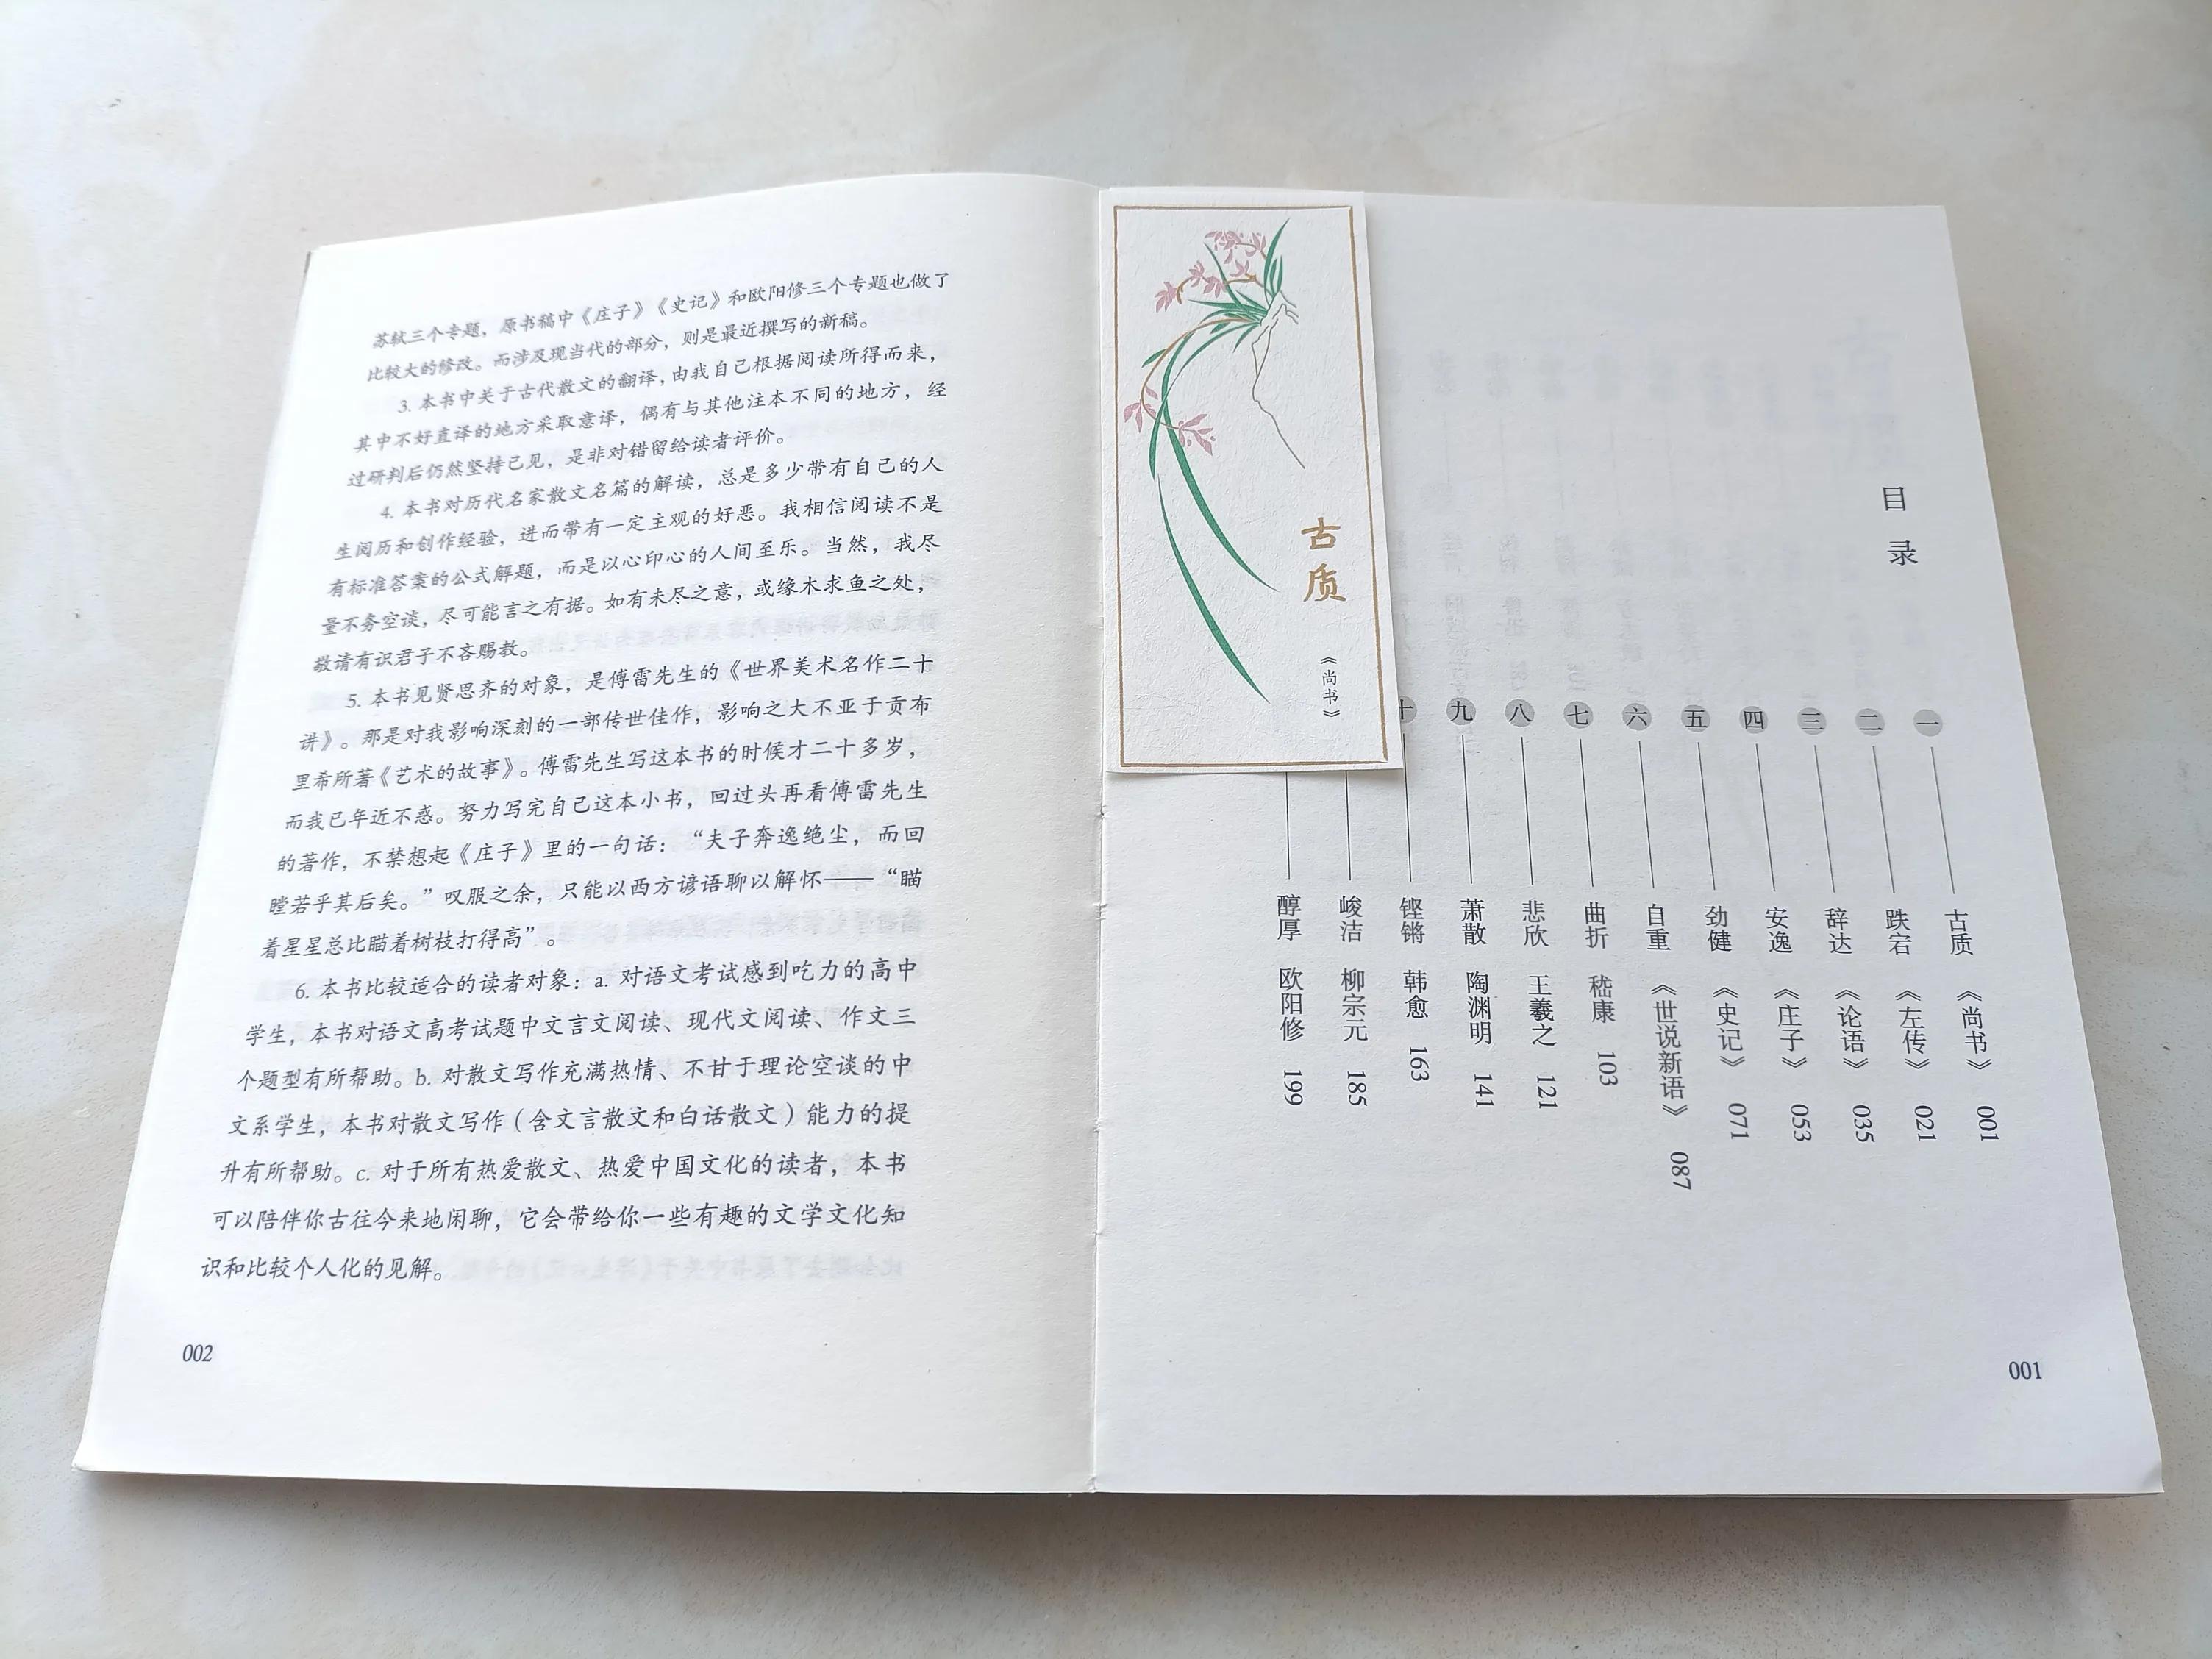 苏轼三个专题，原书稿中《庄子》《史记》和欧阳修三个专题也做了
比较大的修改。而涉及现当代的部分，则是最近撰写的新稿。
3. 本书中关于古代散文的翻译，由我自己根据阅读所得而来，
其中不好直译的地方采取意译，偶有与其他注本不同的地方，经
过研判后仍然坚持己见，是非对错留给读者评价。
4. 本书对历代名家散文名篇的解读，总是多少带有自己的人
生阅历和创作经验，进而带有一定主观的好恶。我相信阅读不是
有标准答案的公式解题，而是以心印心的人间至乐。当然，我尽
量不务空谈，尽可能言之有据。如有未尽之意，或缘木求鱼之处，
敬请有识君子不吝赐教。
5. 本书见贤思齐的对象，是傅雷先生的《世界美术名作二十
讲》。那是对我影响深刻的一部传世佳作，影响之大不亚于贡布
里希所著《艺术的故事》。傅雷先生写这本书的时候才二十多岁，
而我已年近不惑。努力写完自己这本小书，回过头再看傅雷先生
的著作，不禁想起《庄子》里的一句话：“夫子奔逸绝尘，而回
瞠若乎其后矣。”叹服之余，只能以西方谚语聊以解怀——“瞄
着星星总比瞄着树枝打得高”。
6. 本书比较适合的读者对象：a. 对语文考试感到吃力的高中
学生，本书对语文高考试题中文言文阅读、现代文阅读、作文三
个题型有所帮助。b. 对散文写作充满热情、不甘于理论空谈的中
文系学生，本书对散文写作（含文言散文和白话散文）能力的提
升有所帮助。c. 对于所有热爱散文、热爱中国文化的读者，本书
可以陪伴你古往今来地闲聊，它会带给你一些有趣的文学文化知
识和比较个人化的见解。
002
目录
一 古质 《尚书》 001
二 跌宕 《左传》 021
三 辞达 《论语》 035
四 安逸 《庄子》 053
五 劲健 《史记》 071
六 自重 《世说新语》 087
七 曲折 嵇康 103
八 悲欣 王羲之 121
九 萧散 陶渊明 141
十 铿锵 韩愈 163
峻洁 柳宗元 185
醇厚 欧阳修 199
古质
《尚书》
001